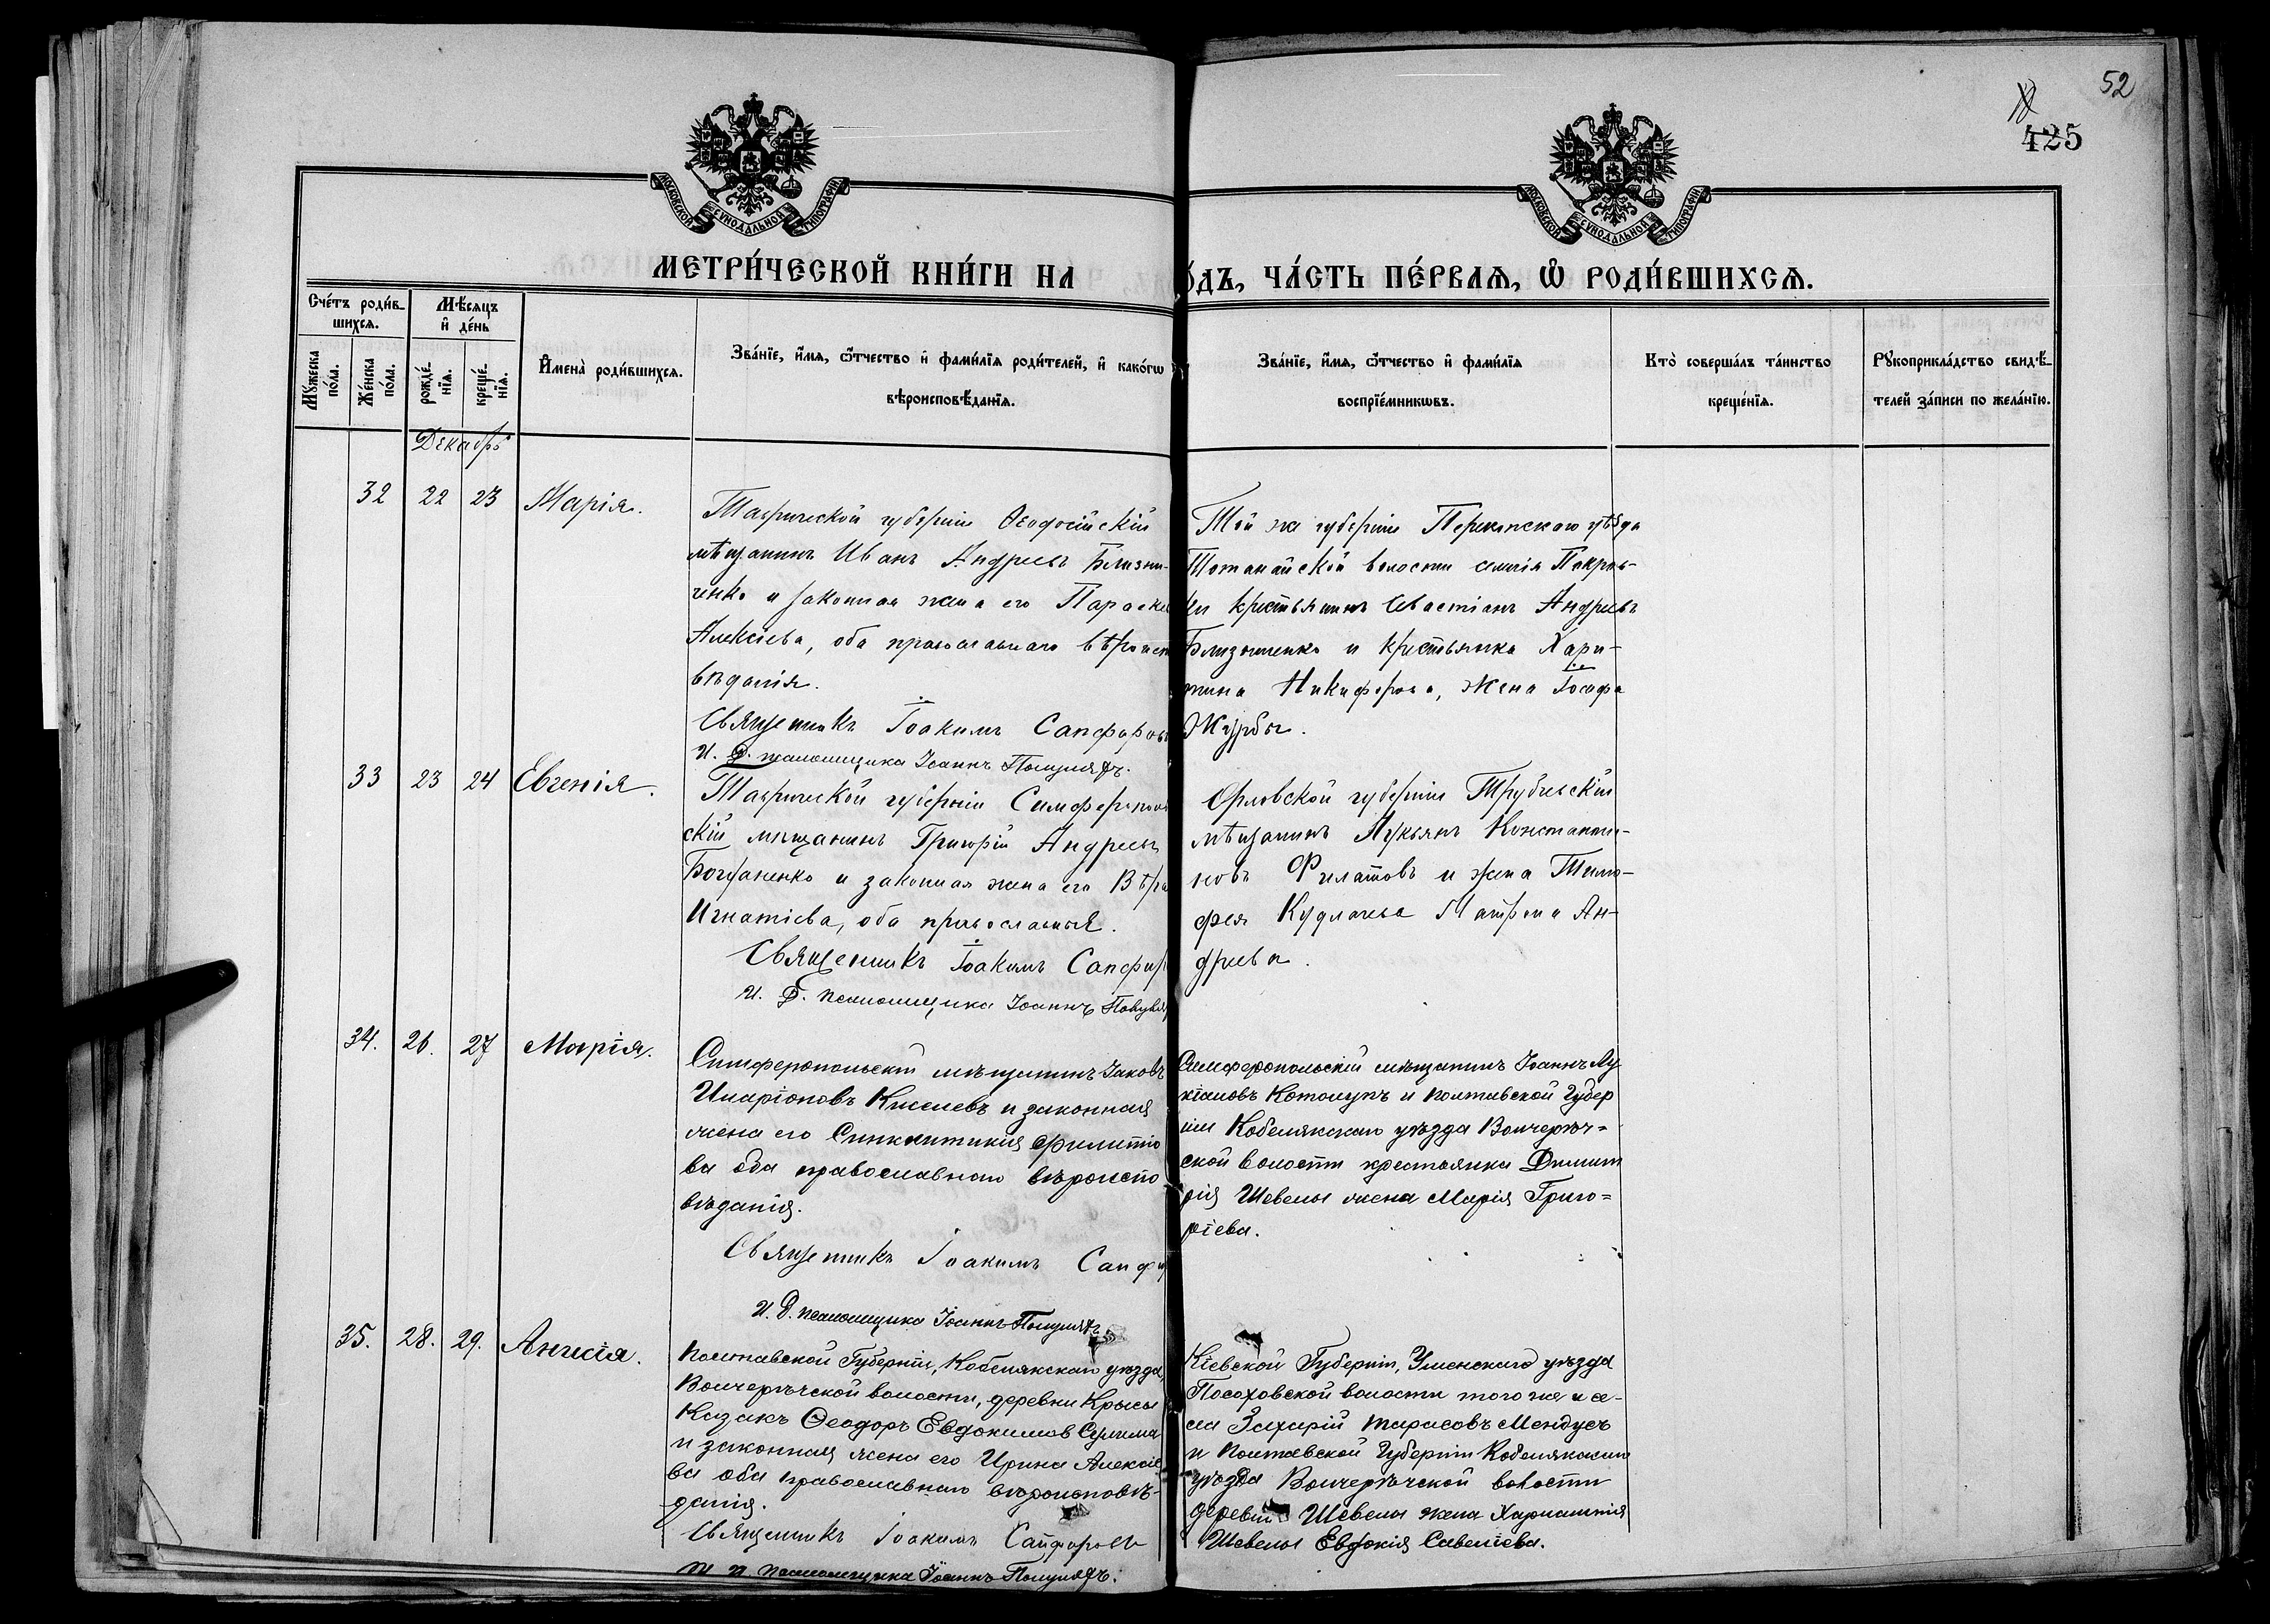 52
425
МОСКОВСКОЙ СѴНОДАЛЬНОЙ ТИПОГРАФІИ
МОСКОВСКОЙ СѴНОДАЛЬНОЙ ТИПОГРАФІИ
МЕТРИ́ЧЕСКОЙ КНИ́ГИ НА
О́ДЪ, ЧА́СТЬ ПЕ́РВАѦ, Ѽ РОДИ́ВШИХСѦ.
Сче́тъ роди́в-
шихсѧ.
Мꙋ́жеска
по́ла.
Же́нска
по́ла.
Мѣ́сѧцъ
и҆ де́нь
рожде́-
нїѧ.
креще́-
нїѧ.
И҆мена̀ роди́вшихсѧ.
Зва́нїе, и҆́мѧ, ѻ҆́тчество и҆ фами́лїѧ роди́телей, и҆ како́гѡ
вѣроисповѣ́данїѧ.
Зва́нїе, и҆́мѧ, ѻ҆́тчество и҆ фами́лїѧ
воспрїе́мникѡвъ.
Кто̀ соверша́лъ та́инство
креще́нїѧ.
Рꙋкоприкла́дство свидѣ́-
телей за́писи по жела́нїю.
Декабрь
32 22 23 Марія.
Таврической губерніи Ѳеодосійскій
мѣщанинъ Иванъ Андреевъ Близни-
ченко и законная жена его Параске
Алексіева, оба православнаго вѣроисп
вѣданія.
Священникъ Іоакимъ Сапфоровъ
И. Д. псаломщика Іоаннъ
Той же губерніи Перекопскаго уѣзда
волости селенія Покров-
ки крестьянинъ Севастіанъ Андреевъ
Близниченко и крестьянка Хари-
тина Никифорова, жена Іосифа
Журбы.
33 23 24 Евгенія.
Таврической губерніи Симферополь
скій мѣщанинъ Григорій Андреевъ
Богданенко и законная жена его Вѣра
Игнатіева, оба православные.
Священникъ Іоакимъ Сапфор
И. Д. псаломщика Іоаннъ
Орловской губерніи Трубчевскій
мѣщанинъ Лукьянъ Константи-
новъ Филатовъ и жена Тимо-
фея Кудлаева Матрона Ан-
дреева.
34. 26. 27 Марія.
Симферопольскій мѣщанинъ Іаковъ
Иларіоновъ Киселевъ и законная
жена его Синклитикія Филиппо
ва оба православнаго вѣроиспо
вѣданія.
Священникъ Іоакимъ Сапф
И. Д. псаломщика Іоаннъ
Симферопольскій мѣщанинъ Іоаннъ Лу
кіановъ Котолупъ и Полтавской Губер
ніи Кобелякскаго уѣзда Волчерѣч=
ской волости крестьянка Димит
рія Шевелы жена Марія Григо=
ріева.
35. 28. 29. Анисія.
Полтавской Губерніи, Кобелякскаго уѣзда,
Волчерѣчской волости, деревни Крысы
Казакъ Ѳеодоръ Евдокимов Сулима
и законная жена его Ирина Алексіе
ва оба православнаго вѣроисповѣ-
данія.
Священникъ Іоакимъ Сапфоровъ
псаломщика Іоаннъ
Кіевской Губерніи, Уманскаго уѣзда
Посоховской волости того же и се-
ла Захарій Тарасовъ Мендусъ
и Полтавской Губерніи Кобелякскаго
уѣзда Волчерѣчской волости
деревни Шевелы жена Харлампія
Шевелы Евдокія Савеліева.